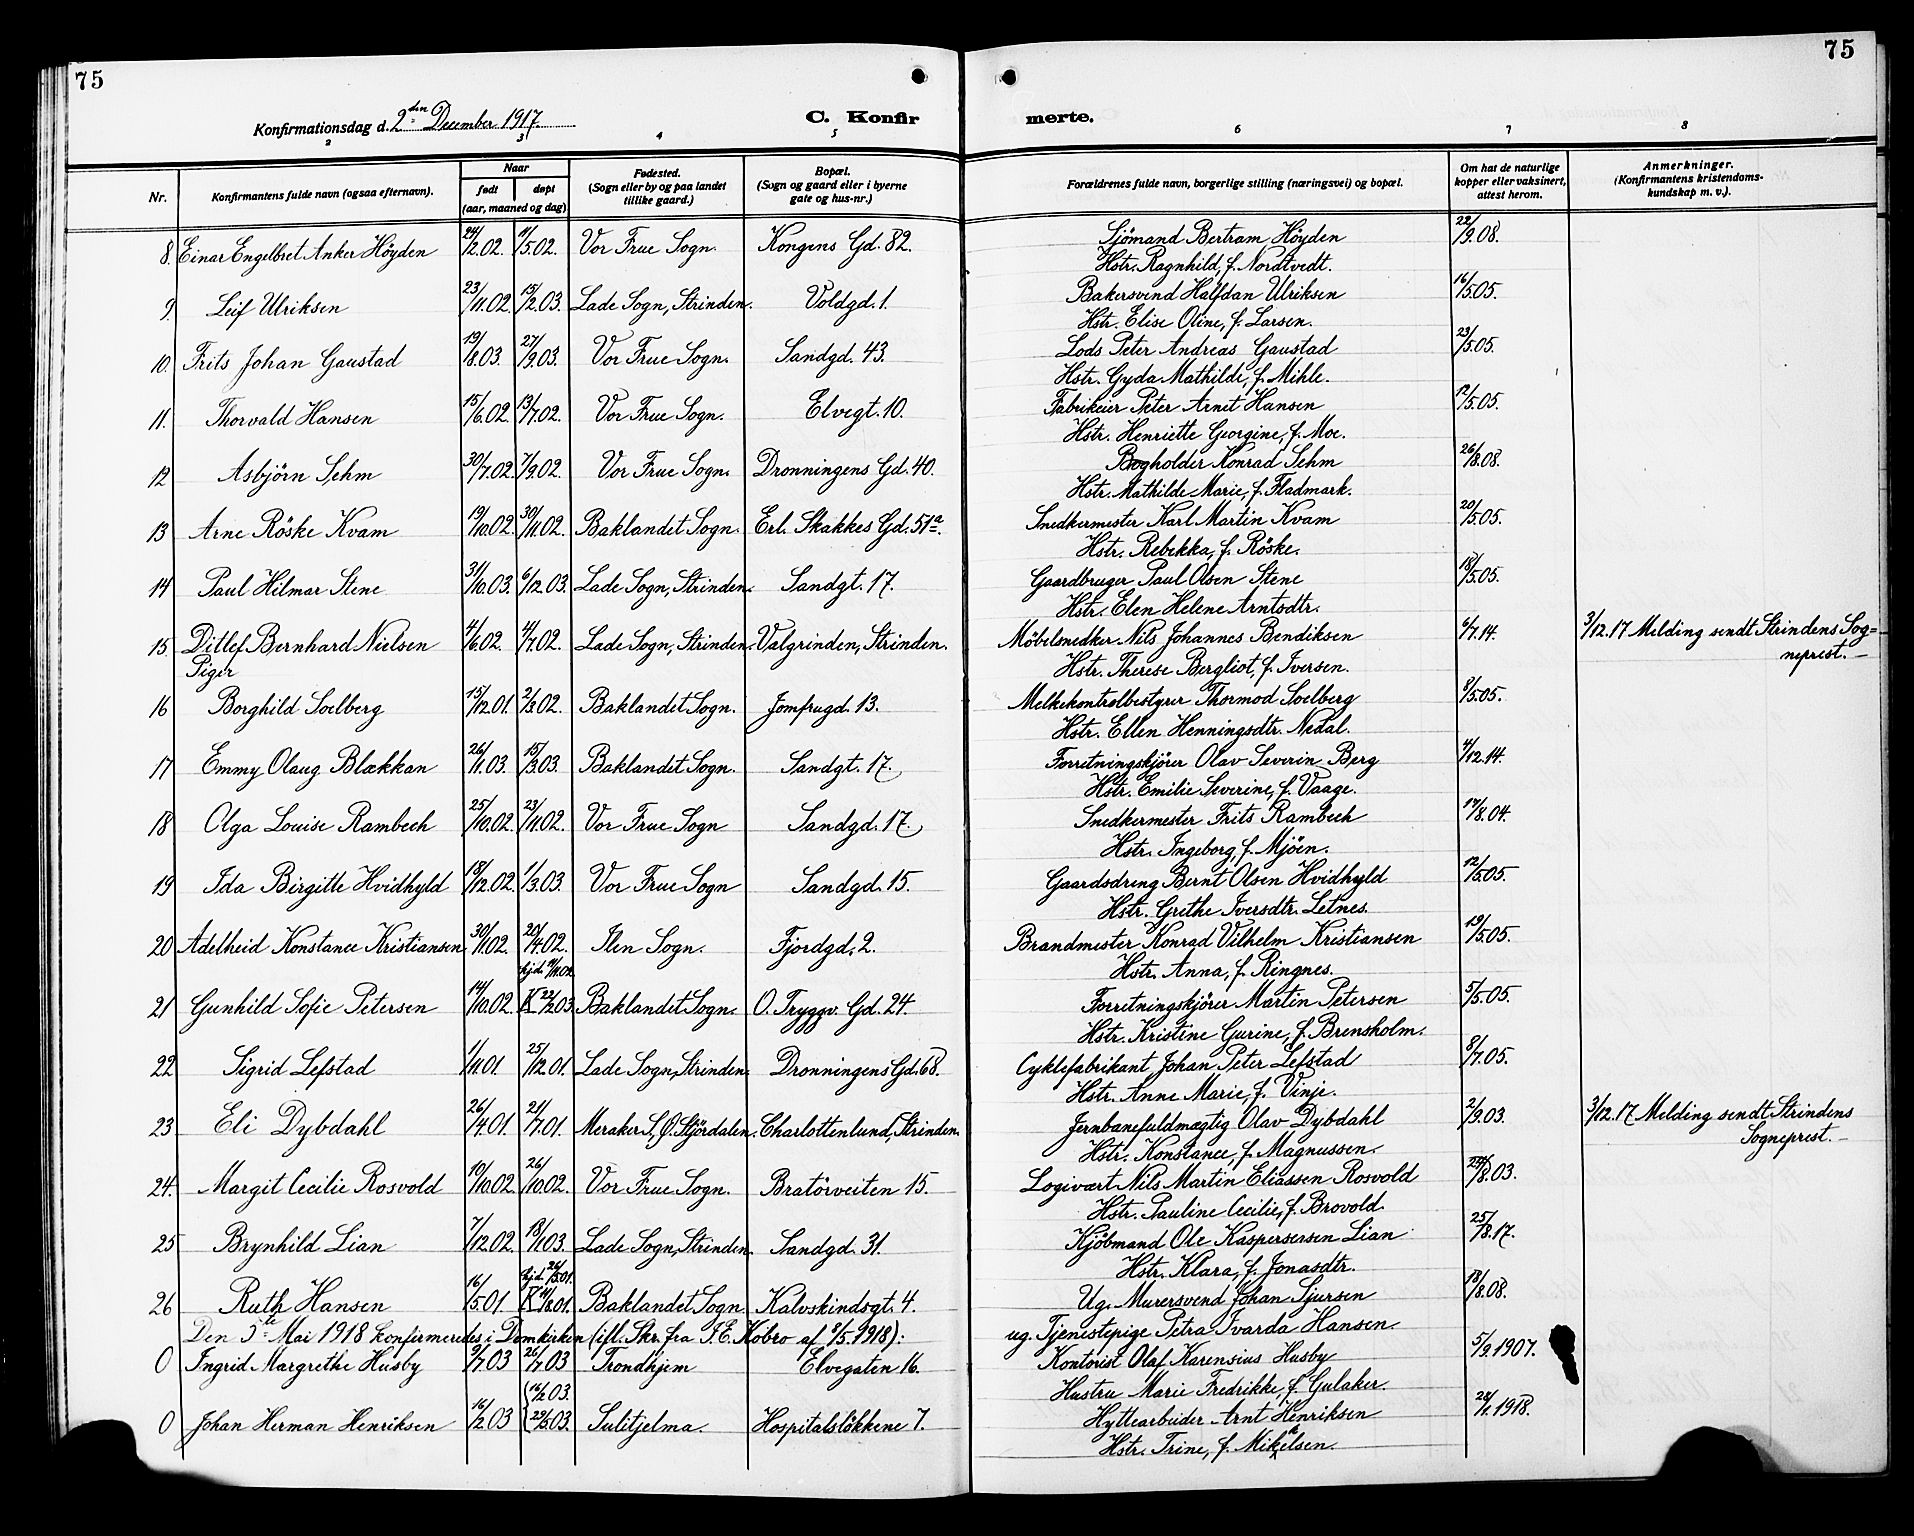 75
75
Konfirmationsdag d. 2den December 1917.
C. Konfir
merte.
2 3 4 5 6 7 8
Nr.
Konfirmantens fulde navn (ogsaa efternavn).
Naar
født
døpt
(aar, maaned og dag)
Fødested.
(Sogn eller by og paa landet
tillike gaard.)
Bopæl.
(Sogn og gaard eller i byerne
gate og hus-nr.)
Forældrenes fulde navn, borgerlige stilling (næringsvei) og bopæl.
Om hat de naturlige
kopper eller vaksinert,
attest herom.
Anmerkninger.
(Konfirmantens kristendoms-
kundskap m. v.).
8. Einar Engelbret Anker Höyden 24/2.02. 11/5.02. Vor Frue Sogn. Kongens Gd. 82. Sjömand Bertram Höyden 22/9.08.
Hstr. Ragnhild, f. Nordtvedt.
9. Leif Ulriksen 23/11.02. 15/2.03. Lade Sogn, Strinden. Voldgd. 1. Bakersvend Halfdan Ulriksen 16/5.05.
Hstr. Elise Oline, f. Larsen.
10. Frits Johan Gaustad 19/8.03. 27/9.03. Vor Frue Sogn. Sandgd. 43. Lods Peter Andreas Gaustad 23/5.05.
Hstr. Gyda Mathilde, f. Mihle.
11. Thorvald Hansen 15/6.02. 13/7.02. Vor Frue Sogn. Elvegt. 10. Fabrikeier Peter Arnet Hansen 12/5.05.
Hstr. Henriette Georgine, f. Moe.
12 Asbjörn Sehm 30/7.02. 7/9.02. Vor Frue Sogn. Dronningens Gd. 40. Bogholder Konrad Sehm 26/8.08.
Hstr. Mathilde Marie, f. Fladmark.
13 Arne Röske Kvam 19/10.02. 30/11.02. Baklandet Sogn. Erl. Skakkes Gd. 51a. Snedkermester Karl Martin Kvam 20/5.05.
Hstr. Rebekka, f. Röske.
14 Paul Hilmar Stene 31/10.03. 6/12.03. Lade Sogn, Strinden. Sandgt. 17. Gaardbruger Paul Olsen Stene 18/5.05.
Hstr. Elen Helene Arntsdtr.
15. Ditlef Bernhard Nielsen 4/6.02. 4/7.02. Lade Sogn, Strinden. Valgrinden, Strinden. Möbelsnedker Nils Johannes Bendiksen 6/7.14. 3/12.17 Melding sendt Strindens Sog=
neprest. –
Piger Hstr. Therese Bergliot, f. Iversen.
16 Borghild Soelberg 15/12.01. 2/3.02. Baklandet Sogn. Jomfrugd. 13. Melkekontrolbestyrer Thormod Soelberg 8/5.05.
Hstr. Ellen Henningsdtr. Nedal.
17 Emmy Olaug Blækkan 26/1.03. 15/3.03. Baklandet Sogn. Sandgt. 17. Forretningskjörer Olav Severin Berg 4/12.14.
Hstr. Emilie Severine, f. Vaage.
18 Olga Louise Rambech 25/10.02. 23/11.02. Vor Frue Sogn Sandgd. 17. Snedkermester Frits Rambech 17/8.04.
Hstr. Ingeborg, f. Mjöen.
19 Ida Birgitte Hvidhyld 18/12.02. 1/3.03. Vor Frue Sogn Sandgd. 15. Gaardsdreng Bernt Olsen Hvidhyld 12/5.05.
Hstr. Grethe Iversdtr. Letnes.
20 Adelheid Konstance Kristiansen 30/1.02. 20/4.02. Ilen Sogn. Fjordgd. 2. Brandmester Konrad Vilhelm Kristiansen 19/5.05.
Hstr. Anna, f. Ringnes.
21 Gunhild Sofie Petersen 14/10.02. K 22/2.03. Baklandet Sogn. O. Tryggv. Gd. 24. Forretningskjörer Martin Petersen 5/5.05.
Hstr. Kristine Gurine, f. Brensholm.
22 Sigrid Lefstad 1/11.01. 25/12.01. Lade Sogn, Strinden. Dronningens Gd. 68. Cyklefabrikant Johan Peter Lefstad 8/7.05.
Hstr. Anne Marie, f. Vinje.
23 Eli Dybdahl 26/4.01. 21/7.01. Meraker S, Ö. Stjördalen. Charlottenlund, Strinden. Jernbanefuldmægtig Olav Dybdahl 2/9.03. 3/12.17 Melding sendt Strindens
Sogneprest. –
Hstr. Konstance, f. Magnussen.
24. Margit Cecilie Rosvold 10/10.02. 26/10.02. Vor Frue Sogn. Bratörveiten 15. Logivært Nils Martin Eliassen Rosvold /8.03.
Hstr. Pauline Cecilie, f. Brovold.
25 Brynhild Lian 7/12.02. 18/1.03. Lade Sogn, Strinden. Sandgd. 31. Kjöbmand Ole Kaspersersen Lian 25/8.17.
Hstr. Klara, f. Jonasdtr.
hjd. 26/5.01.
26 Ruth Hansen 16/5.01. K 11/8.01. Baklandet Sogn. Kalvskindsgt. 4. Ug. Murersvend Johan Sjursen 18/8.08.
ug. Tjenestepige Petra Ivarda Hansen.
Den 5te Mai 1918 konfirmeredes i Domkirken (ifl. Skr. fra I. E. Kobro af 8/5.1918):
0 Ingrid Margrethe Husby 9/7 03 26/7 03 Trondhjem Elvegaten 16. Kontorist Olaf Karensius Husby 5/9.1907.
Hustru Marie Fredrikke, f. Gulaker.
0 Johan Herman Henriksen 16/2 03 (14/2 03. (29/6 03. Sulitjelma. Hospitalslökkene 7. Hyttearbeider Arnt Henriksen 28/1.1918.
Hstr. Trine, f. Mikkelsen.